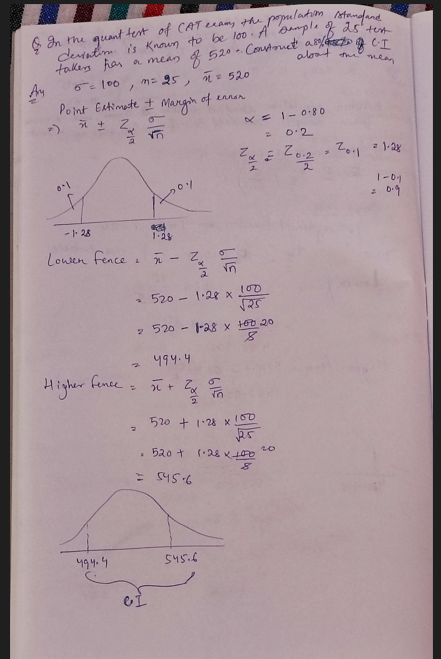 Q In the quant test of CAT exam, the population standard
deviation is known to be 100. A sample of 25 test
takers has a mean of 520. Construct a 80% CI
about the mean
Ans σ = 100, n = 25, x̄ = 520
Point Estimate ± Margin of error
⇒) x̄ ± Z α/2 σ/√n
α = 1 - 0.80
= 0.2
Z α/2 = Z 0.2/2 = Z 0.1 = 1.28
1-0.1
= 0.9
0.1 0.1
-1.28 1.28
Lower fence = x̄ - Z α/2 σ/√n
= 520 - 1.28 × 100/√25
= 520 - 1.28 × 100/5 20
= 494.4
Higher fence = x̄ + Z α/2 σ/√n
= 520 + 1.28 × 100/√25
= 520 + 1.28 × 100/5 20
= 545.6
494.4 545.6
CI